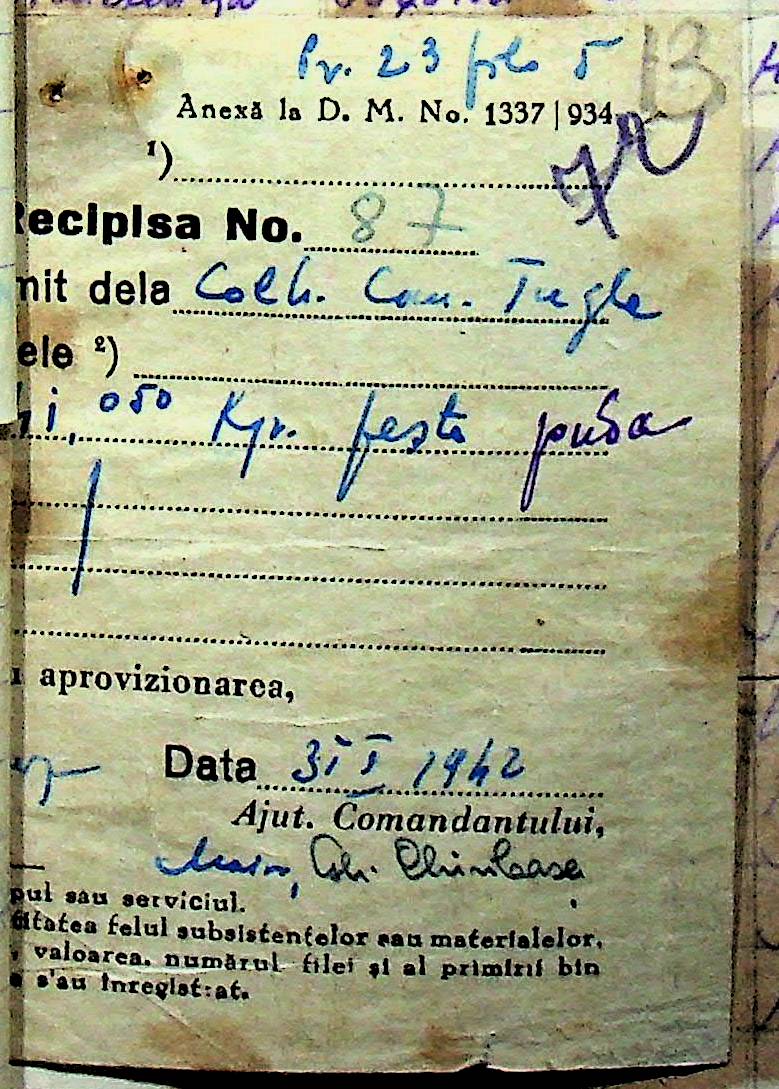 Pr. 23 fila 5
13
Anexă la D. M. No. 1337 | 934
72
¹)
Recipisa No. 87
mit dela Colh. Com.
ele ²)
i, 050 Kgr.
aprovizionarea,
Data 31 I 1942
Ajut. Comandantului,
Maior, Gh.
pul sau serviciul.
titatea felul subsistențelor sau materialelor,
, valoarea, numărul filei și al primirii bin
s'au înregistrat.